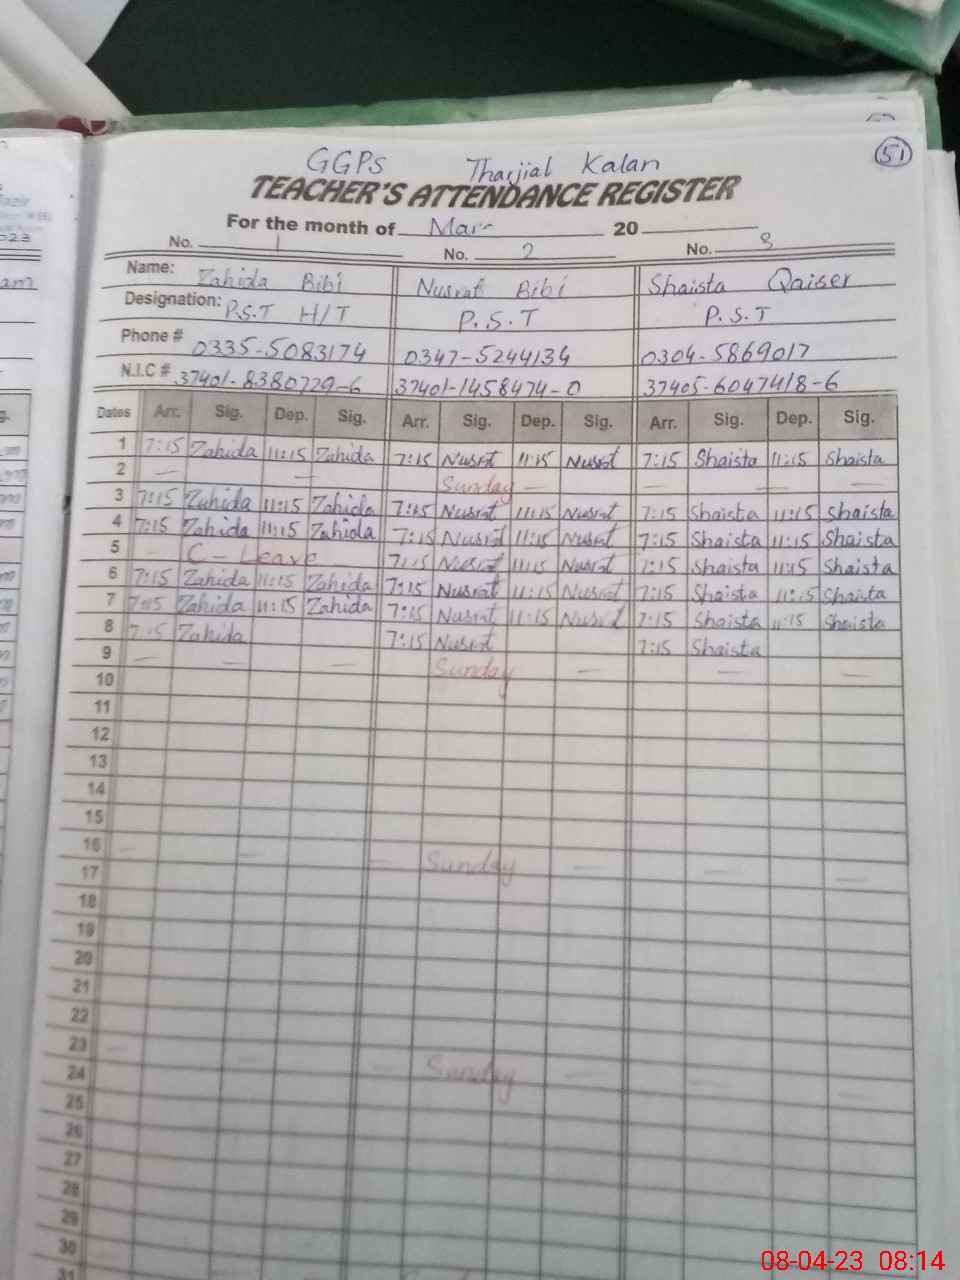 GGPS Tharjial Kalan
51
TEACHER'S ATTENDANCE REGISTER
For the month of Mar 20
No. 1 No. 2 No. 3
Name: Zahida Bibi Nusrat Bibi Shaista Qaiser
Designation: P.S.T H/T P.S.T P.S.T
Phone # 0335-5083174 0347-5244134 0304-5869017
N.I.C # 37401-8380729-6 37401-1458474-0 37405-6047418-6
Dates Arr. Sig. Dep. Sig. Arr. Sig. Dep. Sig. Arr. Sig. Dep. Sig.
1 7:15 Zahida 11:15 Zahida 7:15 Nusrat 11:15 Nusrat 7:15 Shaista 11:15 Shaista
2 — — Sunday — — — —
3 7:15 Zahida 11:15 Zahida 7:15 Nusrat 11:15 Nusrat 7:15 Shaista 11:15 Shaista
4 7:15 Zahida 11:15 Zahida 7:15 Nusrat 11:15 Nusrat 7:15 Shaista 11:15 Shaista
5 C-Leave 7:15 Nusrat 11:15 Nusrat 7:15 Shaista 11:15 Shaista
6 7:15 Zahida 11:15 Zahida 7:15 Nusrat 11:15 Nusrat 7:15 Shaista 11:15 Shaista
7 7:15 Zahida 11:15 Zahida 7:15 Nusrat 11:15 Nusrat 7:15 Shaista 11:15 Shaista
8 7:15 Zahida 7:15 Nusrat 7:15 Shaista
9 — — — Sunday — — —
10
11
12
13
14
15
16 — — — Sunday — — —
17
18
19
20
21
22
23 — — Sunday — — —
24
25
26
27
28
29
30
31
08-04-23 08:14